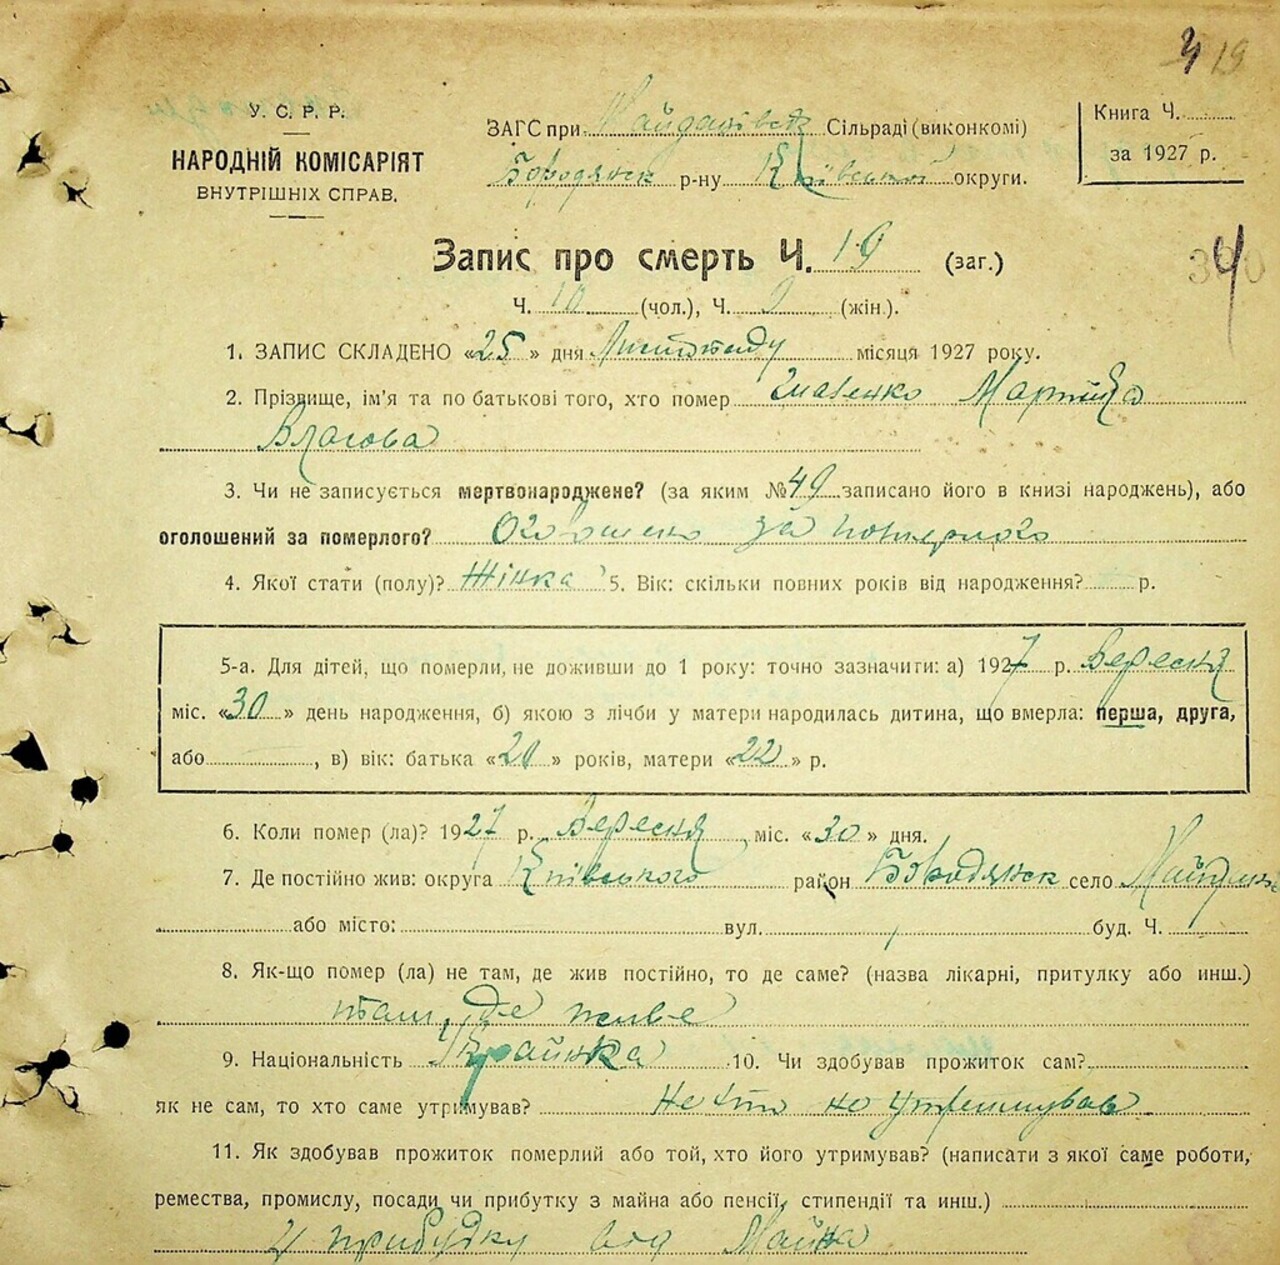 4 19
У. С. Р. Р.
НАРОДНІЙ КОМІСАРІЯТ
ВНУТРІШНІХ СПРАВ.
ЗАГС при Майданівск Сільраді (виконкомі)
Бородянск р-ну Київської округи.
Книга Ч.
за 1927 р.
Запис про смерть Ч. 19 (заг.)
Ч. 10 (чол.), Ч. 9 (жін.).
4
1. ЗАПИС СКЛАДЕНО «25» дня Листопаду місяця 1927 року.
2. Прізвище, ім'я та по батькові того, хто помер
Власова
3. Чи не записується мертвонароджене? (за яким № 49 записано його в книзі народжень), або
оголошений за померлого? за померлого
4. Якої стати (полу)? Жінка 5. Вік: скільки повних років від народження? р.
5-а. Для дітей, що померли, не доживши до 1 року: точно зазначити: а) 1927 р. Вересня
міс. «30» день народження, б) якою з лічби у матери народилась дитина, що вмерла: перша, друга,
або , в) вік: батька «21» років, матери «22» р.
6. Коли помер (ла)? 1927 р. Вересня міс. «30» дня.
7. Де постійно жив: округа Київського район Бородянск село
або місто: вул. буд. Ч.
8. Як-що помер (ла) не там, де жив постійно, то де саме? (назва лікарні, притулку або инш.)
там, де живе
9. Національність Українка 10. Чи здобував прожиток сам?
як не сам, то хто саме утримував? не утримував
11. Як здобував прожиток померлий або той, хто його утримував? (написати з якої саме роботи,
ремества, промислу, посади чи прибутку з майна або пенсії, стипендії та инш.)
З прибудку від Майна